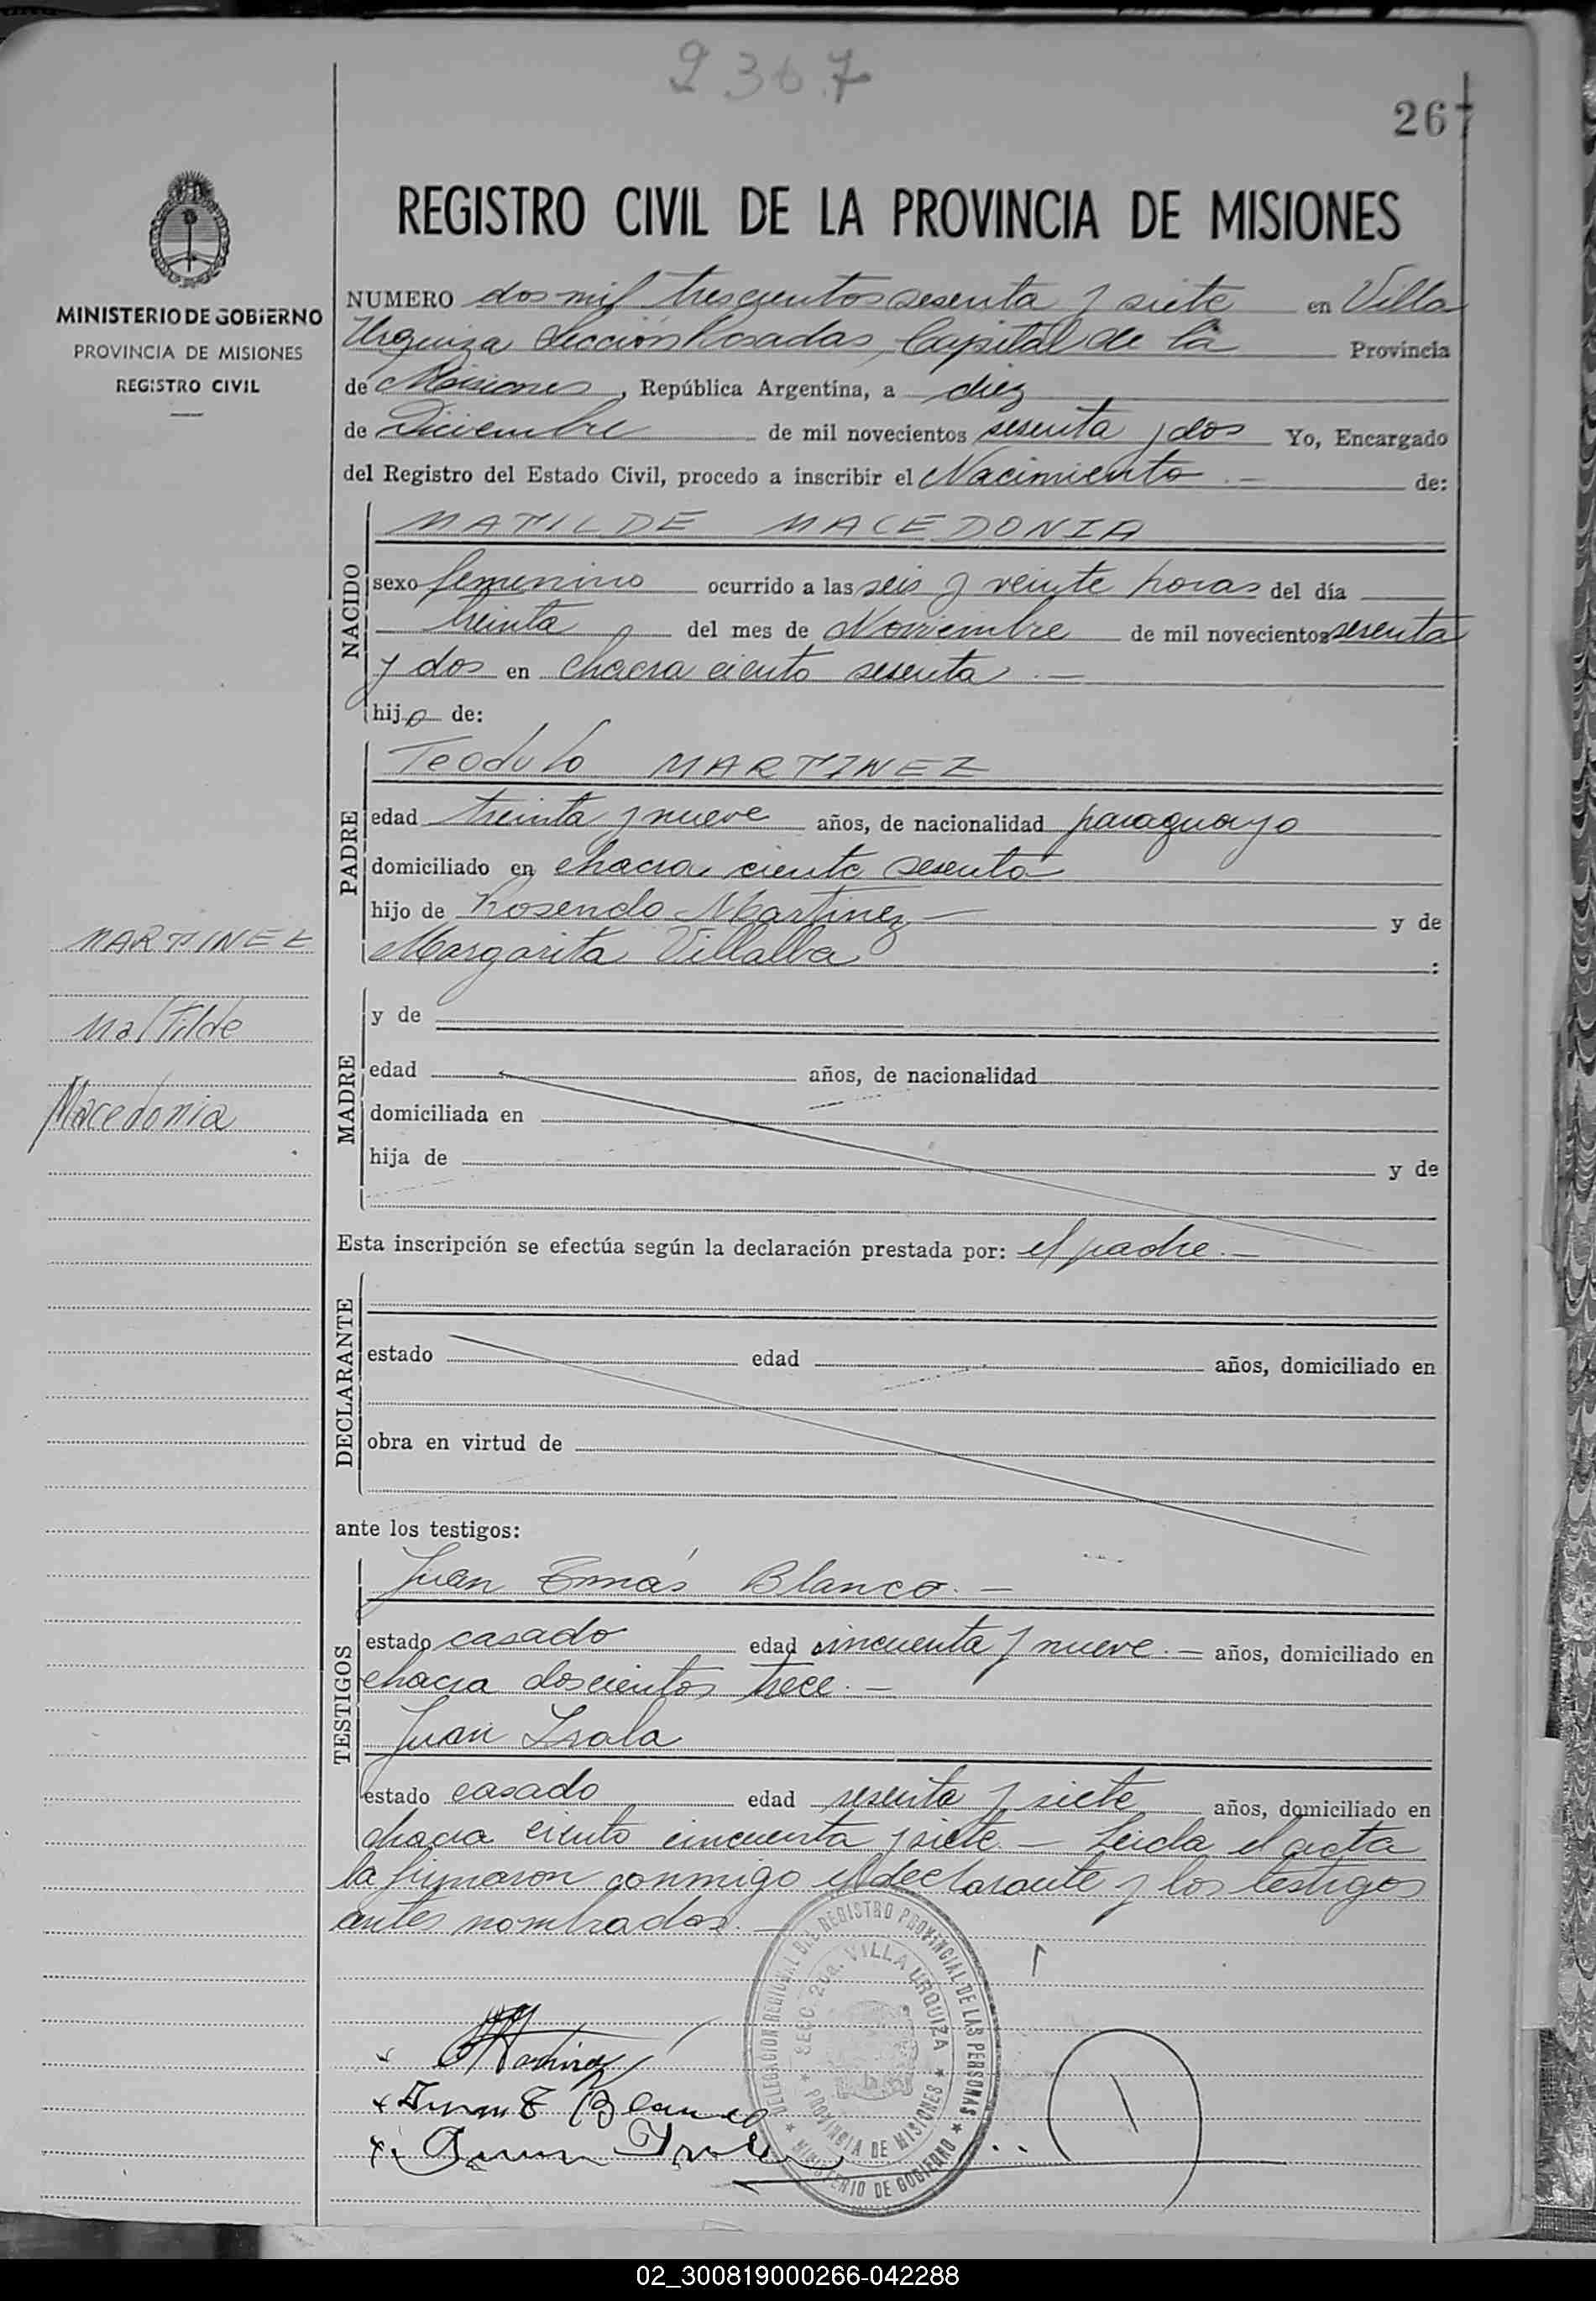 2367
267
REGISTRO CIVIL DE LA PROVINCIA DE MISIONES
MINISTERIO DE GOBIERNO
PROVINCIA DE MISIONES
REGISTRO CIVIL
NUMERO dos mil trescientos sesenta y siete en Villa
Urquiza Sección Posadas, Capital de la Provincia
de Misiones, República Argentina, a diez
de Diciembre de mil novecientos sesenta y dos Yo, Encargado
del Registro del Estado Civil, procedo a inscribir el Nacimiento.- de:
NACIDO
MATILDE MACEDONIA
sexo femenino ocurrido a las seis y veinte horas del día
treinta del mes de Noviembre de mil novecientos sesenta
y dos en chacra ciento sesenta.-
hija de:
PADRE
Teodulo MARTINEZ
edad treinta y nueve años, de nacionalidad paraguayo
domiciliado en chacra ciento sesenta
hijo de Rosendo Martinez - y de
Margarita Villalba :
MARTINEZ
Matilde
Macedonia
MADRE
y de
edad años, de nacionalidad
domiciliada en
hija de y de
Esta inscripción se efectúa según la declaración prestada por: el padre.-
DECLARANTE
estado edad años, domiciliado en
obra en virtud de
ante los testigos:
TESTIGOS
Juan Tomás Blanco.-
estado casado edad cincuenta y nueve.- años, domiciliado en
chacra doscientos trece.-
Juan Isola
estado casado edad sesenta y siete años, domiciliado en
chacra ciento cincuenta y siete - Leida el acta
la firmaron conmigo el declarante y los testigos
antes nombrados.-
DELEGACION REGIONAL DEL REGISTRO PROVINCIAL DE LAS PERSONAS
SECC. 2da. VILLA URQUIZA
PROVINCIA DE MISIONES
MINISTERIO DE GOBIERNO
Martinez
Juan T Blanco
Juan Isola
02_300819000266-042288